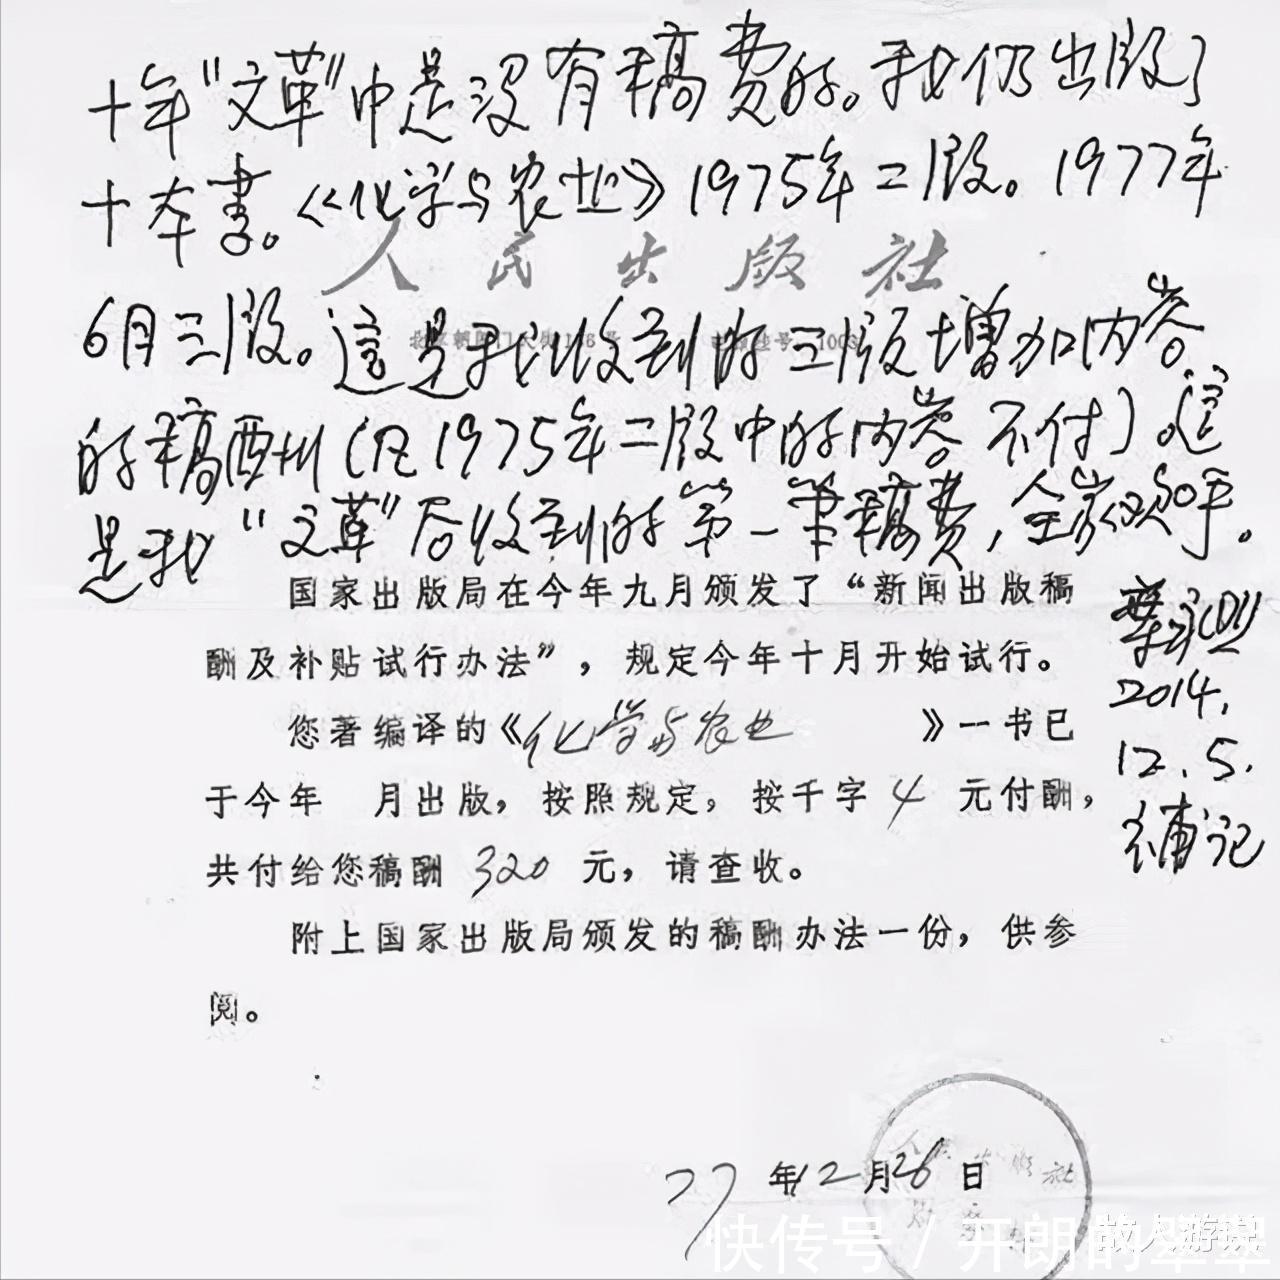 十年“文革”中是没有稿费的。我仍出版了
十本书。《化学与农业》1975年二版。1977年
人民出版社
6月三版。这是我收到的三版增加内容
的稿酬(凡1975年二版中的内容不付)。这
是我“文革”后收到的第一笔稿费，全家欢呼。
国家出版局在今年九月颁发了“新闻出版稿
酬及补贴试行办法”，规定今年十月开始试行。
您著编译的《化学与农业》一书已
于今年 月出版，按照规定，按千字4元付酬，
共付给您稿酬320元，请查收。
附上国家出版局颁发的稿酬办法一份，供参
阅。
2014.
12.5.
补记
77年12月26日
人民出版社
财务
快传号/开朗的翠翠
故人游説